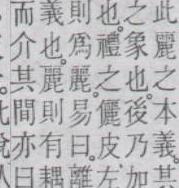 此麗之本義。
之象也。後乃加
也。禮之儷皮、左
則爲麗。易曰離
義也。麗則有耦
而介其間亦曰